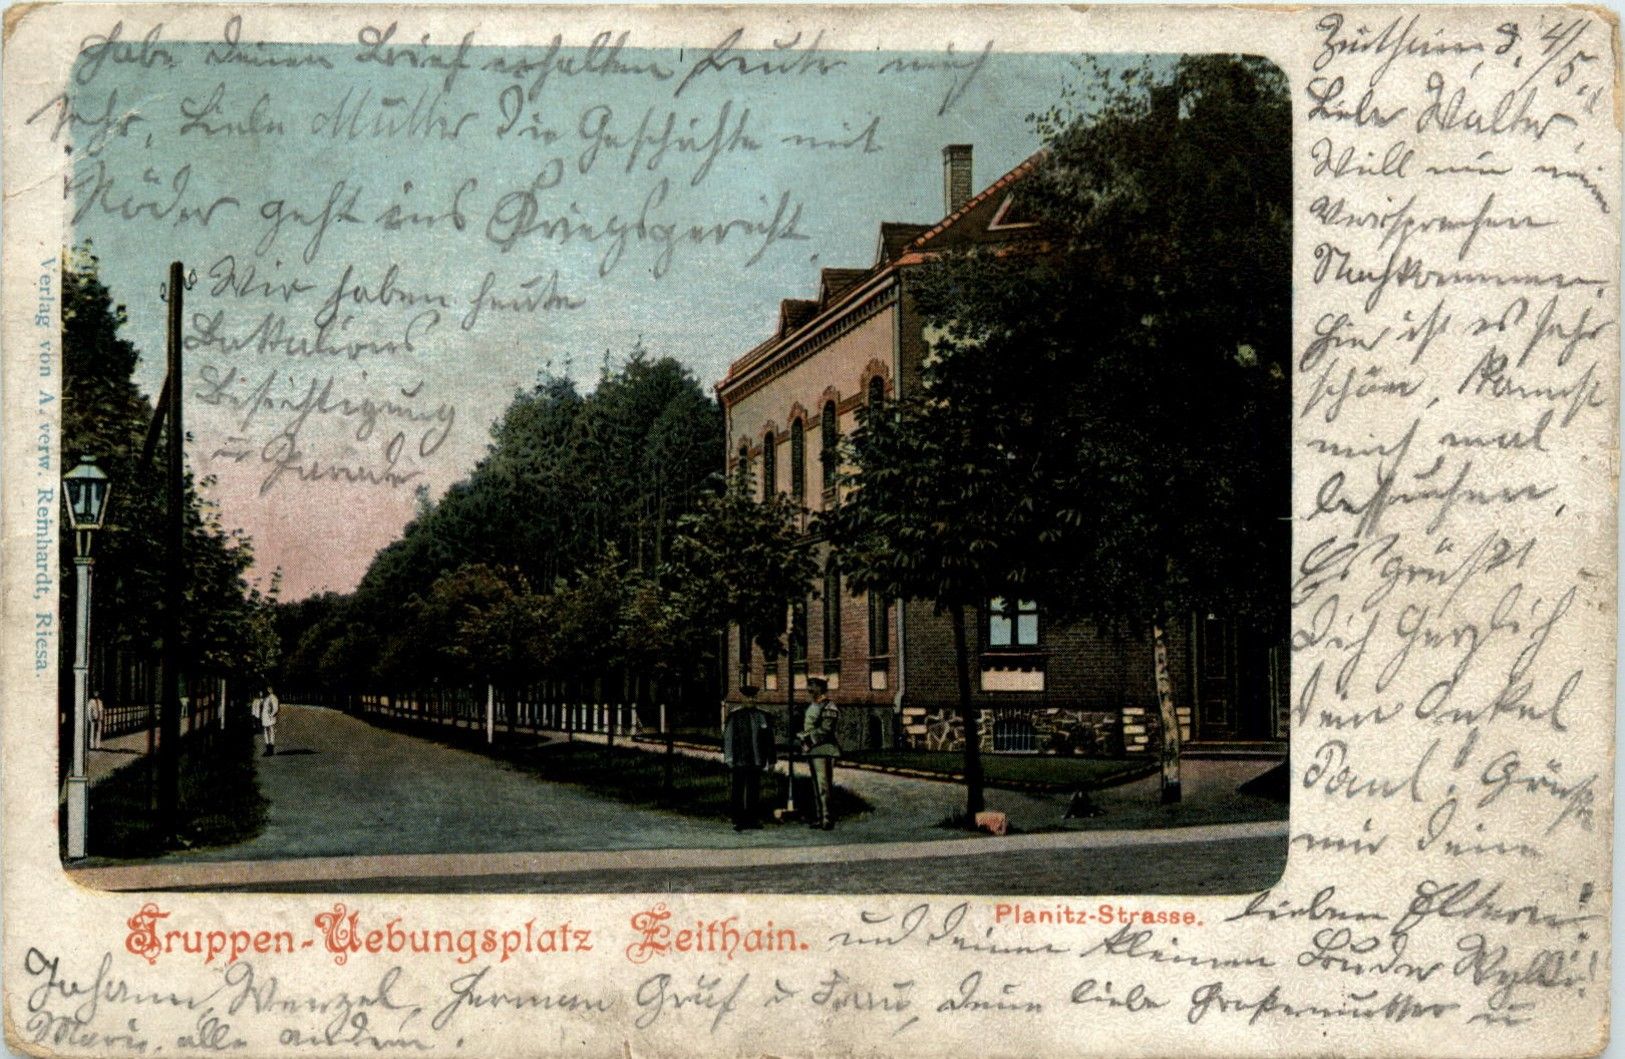 Habe deinen Brief erhalten freute mich
sehr, Liebe Mutter die Geschichte mit
Röder geht ins Kriegsgericht.
Wir haben heute
Battalions
Besichtigung
u Parade.
Zeithain, d. 4/5.
Lieber Walter,
Will nun mein
Versprechen
Nachkommen,
Hier ist es sehr
schön, Kannst
mich mal
besuchen,
Es grüßt
Dich Herzlich
dein Onkel
Paul. Grüße
mir deine
lieben Eltern
und deinen kleinen Bruder
Johann, Wenzel, Herman Gruf u Frau, deine liebe Großmutter u
Marie, alle andern.
Truppen-Uebungsplatz Zeithain.
Planitz-Strasse.
Verlag von A. verw. Reinhardt, Riesa.